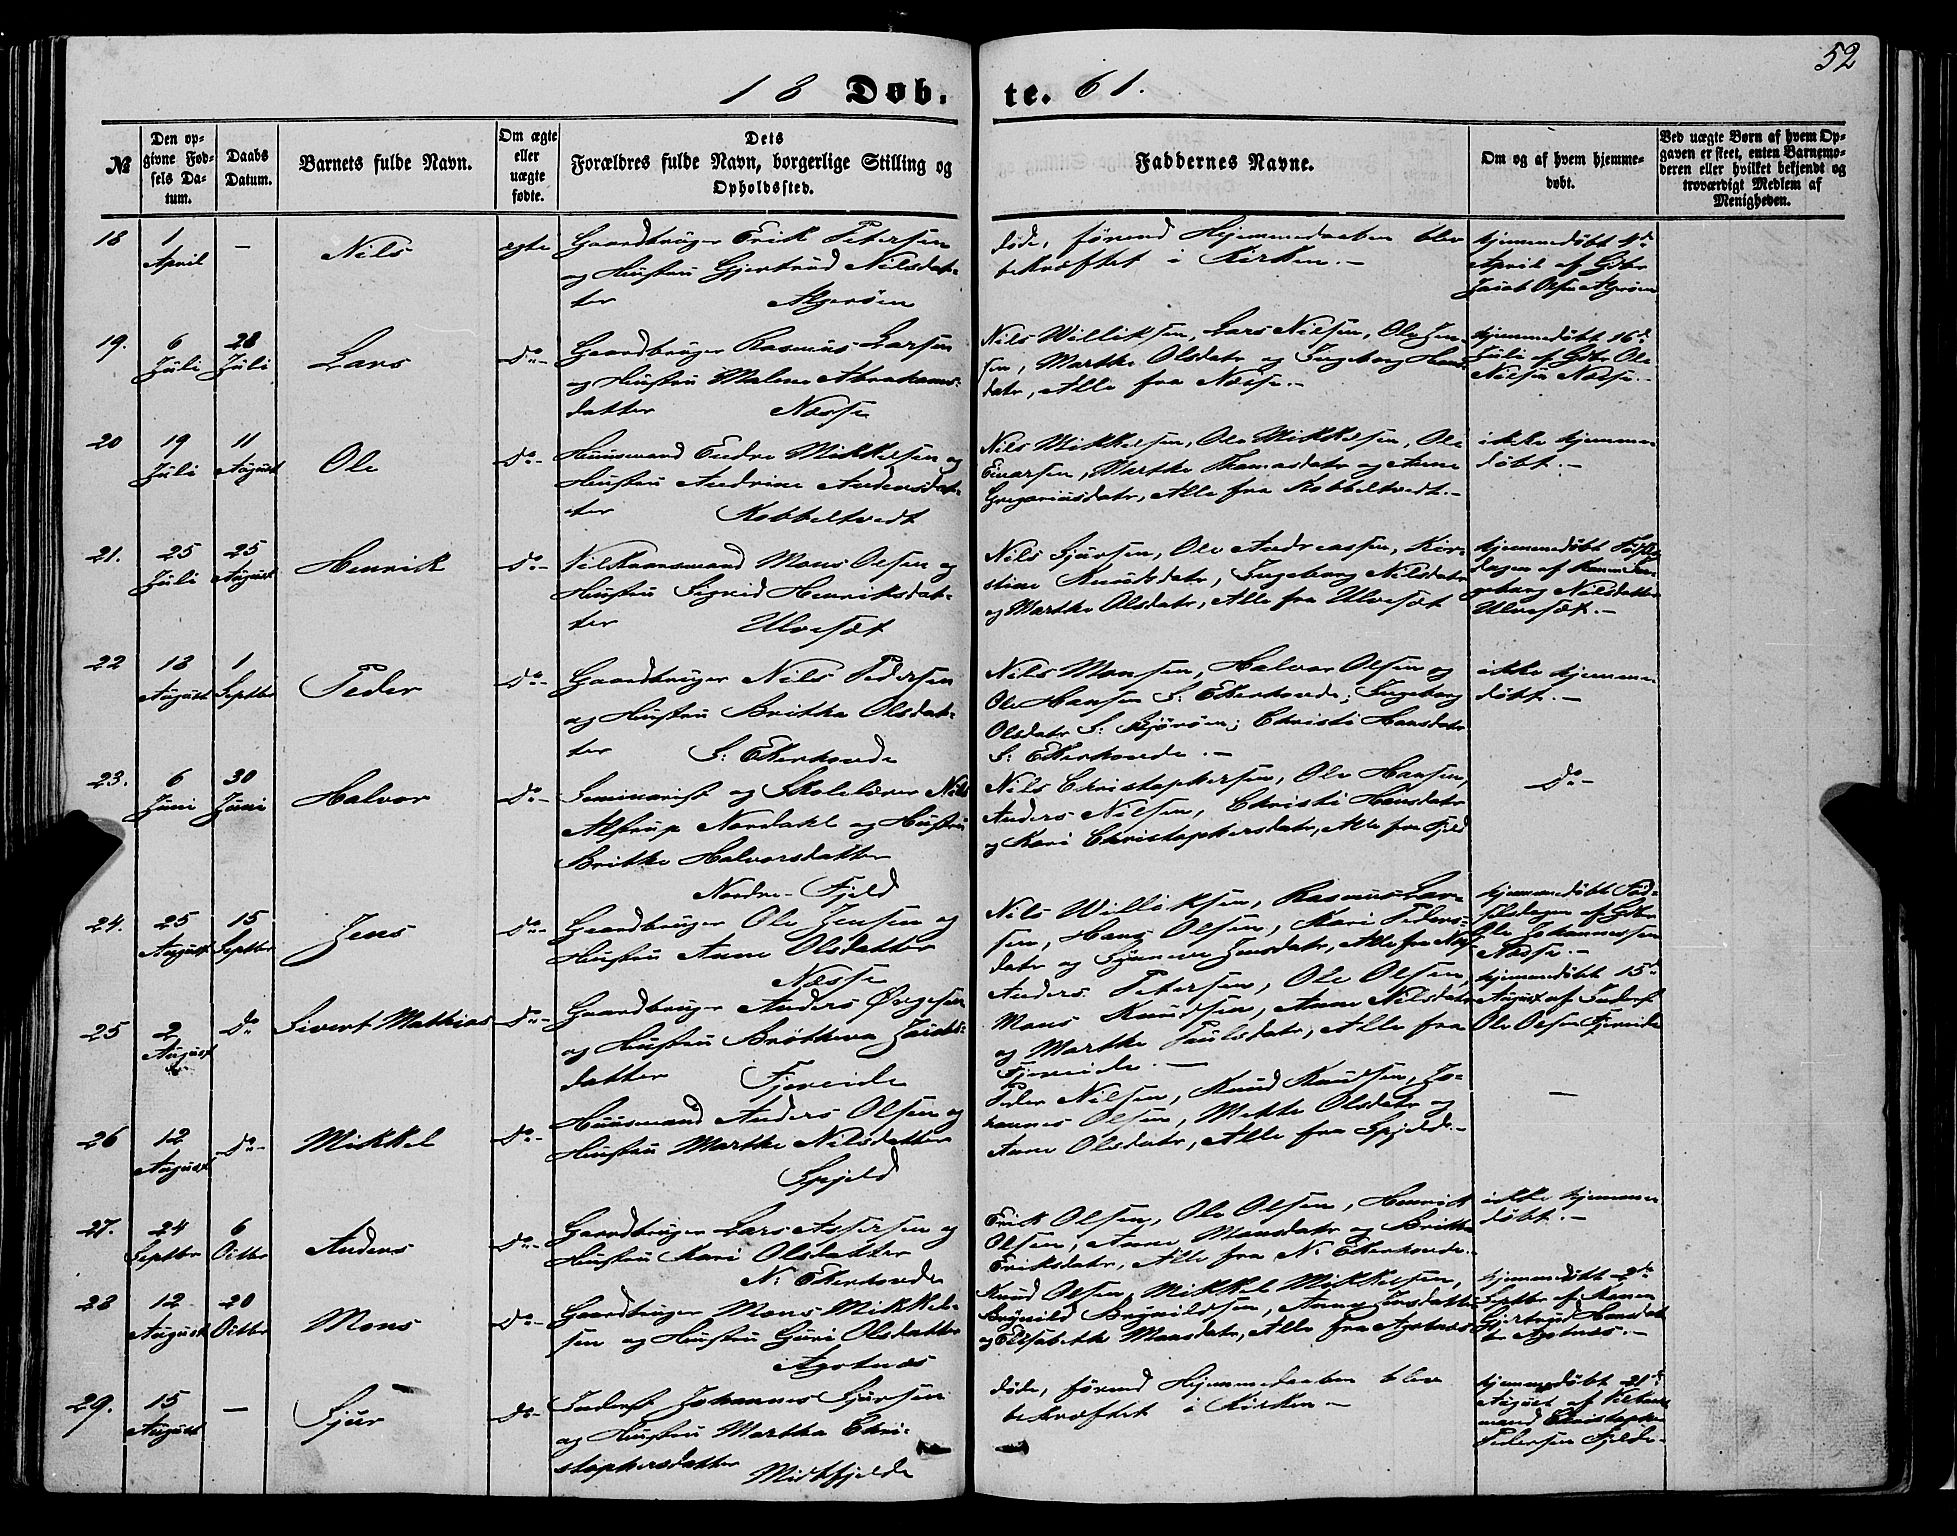 52
18 Døb. te. 61.
№
Den op-
givne Fød-
sels Da-
tum.
Daabs
Datum.
Barnets fulde Navn.
Om ægte
eller
uægte
fødte.
Dets
Forældres fulde Navn, borgerlige Stilling og
Opholdssted.
Faddernes Navne.
Om og af hvem hjemme-
døbt.
Ved uægte Børn af hvem Op-
gaven er skeet, enten Barnemo-
deren eller hvilket bekjendt og
troværdigt Medlem af
Menigheden.
18
1
April
—
Nils
ægte
Gaardbruger Erik Petersen
og Hustru Gjertrud Nilsdat-
ter Algerøen
døde, førend Hjemmedaaben blev
bekræftet i Kirken.—
hjemmedøbt 4de
April af Gbr
Jacob Olsen Algerøen
19.
6
Juli
28
Juli
Lars
Do—
Gaardbruger Rasmus Larsen
og Hustru Malene Abrahams-
datter Næsse
Nils Williksen, Lars Nilsen, Ole Jen-
sen, Marthe Olsdatr og Ingeborg Hans-
datr, Alle fra Næsse.—
hjemmedøbt 16de
Juli af Gbr Ole
Nilsen Næsse.—
20
19
Juli
11
August
Ole
Do—
Huusmand Endre Mikkelsen og
Hustru Andrine Andersdat-
ter Kobbeltvedt
Nils Mikkelsen, Ole Mikkelsen, Ole
Einarsen, Marthe Thomasdatr og Anne
Gregoriusdatr, Alle fra Kobbeltvedt.—
ikke hjemme
døbt.—
21.
25
Juli
25
August
Henrik
Do—
Vilkaarsmand Mons Olsen og
Hustru Sigrid Henriksdat-
ter Ulvesæt
Nils Sjursen, Ole Andreassen, Kir-
stine Knudsdatr, Ingeborg Nilsdatr
og Marthe Olsdatr, Alle fra Ulvesæt
hjemmedøbt Fødsels-
dagen af Konen In-
geborg Nilsdatter
Ulvesæt.—
22
18
August
1
Septbr
Peder
Do—
Gaardbruger Nils Pedersen
og Hustru Brithe Olsdat-
ter S: Ekerhovde
Nils Monsen, Halvor Olsen og
Ole Hansen S: Ekerhovde; Ingeborg
Olsdatr S: Bjørøen; Christi Hansdatr
S: Ekerhovde.—
ikke hjemme
døbt.—
23.
6
Juni
30
Juni
Halvor
Do—
Seminarist og Skolelærer Nils
Alstrup Nordahl og Hustru
Brithe Halvorsdatter
Nordre-Fjeld
Nils Christophersen, Ole Hansen,
Anders Nilsen, Christi Hansdatr
og Kari Christophersdatr, Alle fra Fjeld
Do—
24.
25
August
15
Septbr
Jens
Do—
Gaardbruger Ole Jensen og
Hustru Anne Olsdatter
Næsse
Nils Williksen, Rasmus Lar-
sen, Hans Olsen, Kari Peders-
datr og Synneve Jensdatr, Alle fra Næsse
hjemmedøbt Fød-
selsdagen af Gbr
Ole Johannessen
Næsse.—
25
2
August
Do
Sivert Mathias
Do—
Gaardbruger Anders Ørgesen
og Hustru Brøtheva Jacobs-
datter Fjereide
Anders Petersen, Ole Olsen,
Mons Knudsen, Anne Nilsdatr
og Marthe Paulsdatr, Alle fra
Fjereide.—
hjemmedøbt 15de
August af Inderst
Ole Olsen Fjereide
26
12
August
Do—
Mikkel
Do—
Huusmand Anders Olsen og
Hustru Marthe Nilsdatter
Spjeld
Peder Nilsen, Knud Knudsen, Jo-
hannes Olsen, Mette Olsdatr og
Anne Olsdatr, Alle fra Spjeld.—
—
27.
24
Septbr
6
Octbr
Anders
Do—
Gaardbruger Lars Assersen og
Hustru Kari Olsdatter
N: Ekerhovde
Erik Olsen, Ole Olsen, Henrik
Olsen, Anne Monsdatr og Brithe
Eriksdatr, Alle fra N: Ekerhovde.
ikke hjemme
døbt.—
28
12
August
20
Octbr
Mons
Do—
Gaardbruger Mons Mikkel-
sen og Hustru Guri Olsdatter
Agotnæs
Knud Olsen, Mikkel Mikkelsen,
Brynild Brynildsen, Anne Jensdatter
og Elisabethe Monsdatr, Alle fra Agotnæs
hjemmedøbt 2de
Septbr af Konen
Gjertrud Hansdat-
ter Agotnæs.—
29.
15
August
—
Sjur
Do—
Inderst Johannes Sjursen
og Hustru Marthe Chri-
stophersdatter Midtfjelde
døde, førend Hjemmedaaben blev
bekræftet i Kirken—
hjemmedøbt 21de
August af Vilkaars
mand Christopher
Pedersen Fjelde.